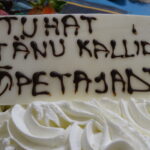 TUHAT
TÄNU KALLID
ÕPETAJAD